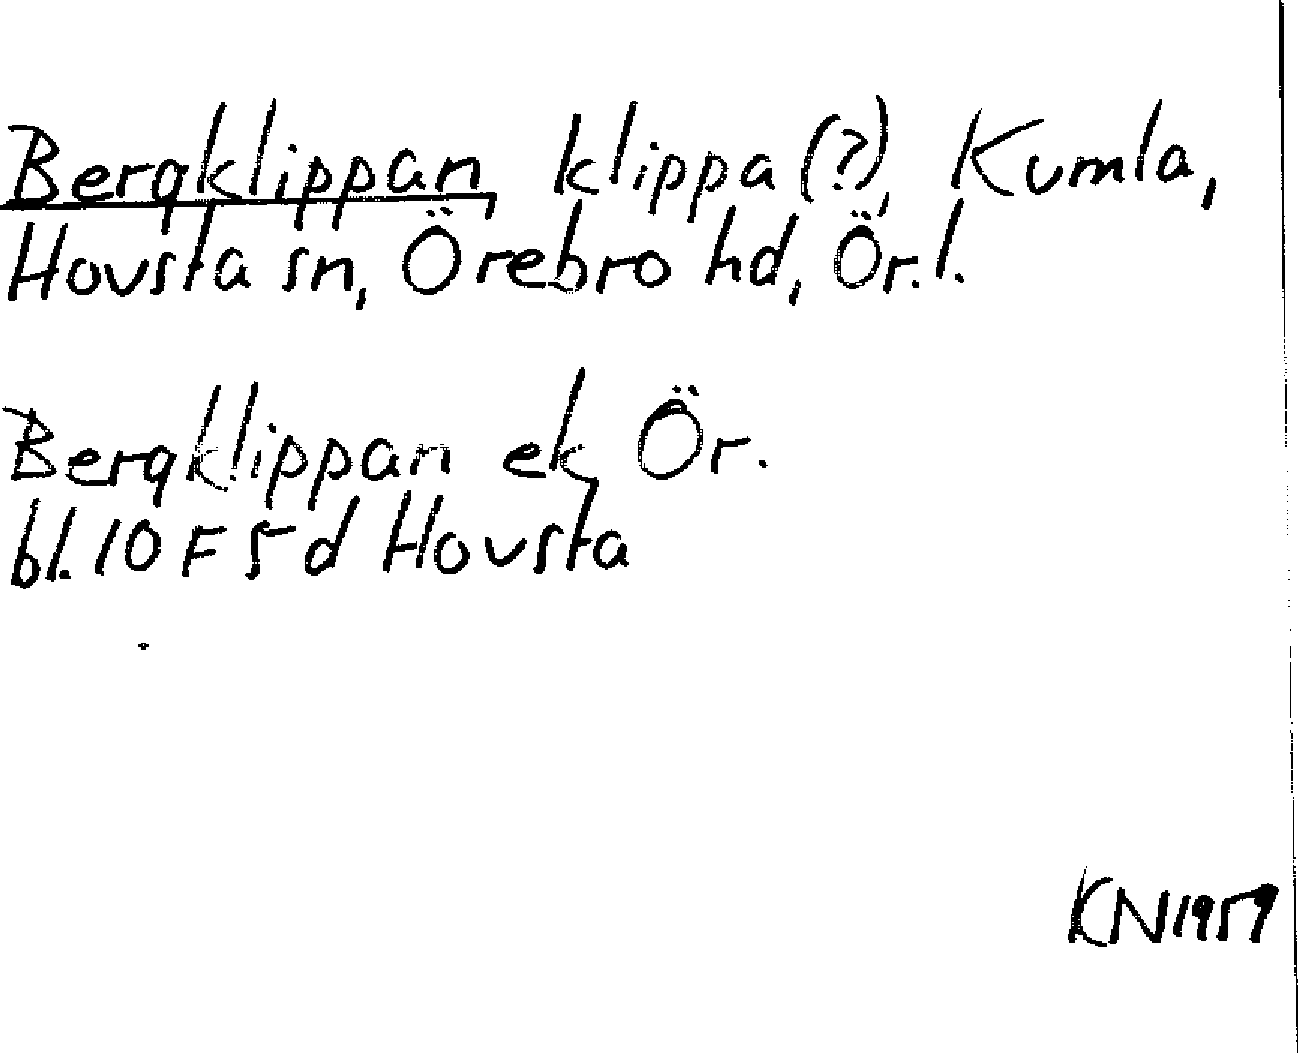 Bergklippan, klippa (?), Kumla,
Hovsta sn, Örebro hd, Ör. l.
Bergklippan ek, Ör.
bl. 10 F 5 d Hovsta
KN 1959